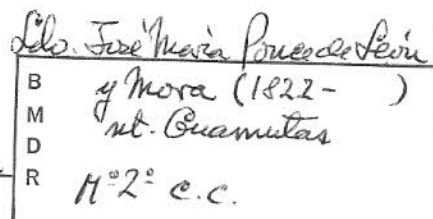 Lcdo. José María Ponce de León
B y Mora (1822-    )
M nt. Guamutas
D
R Mº 2º c.c.